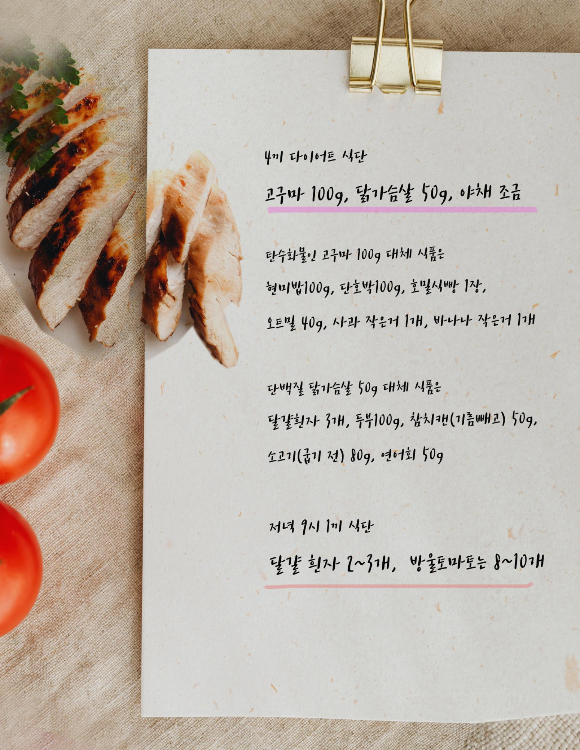 4끼 다이어트 식단
고구마 100g, 닭가슴살 50g, 야채 조금
탄수화물인 고구마 100g 대체 식품은
현미밥100g, 단호박100g, 호밀식빵 1장,
오트밀 40g, 사과 작은거 1개, 바나나 작은거 1개
단백질 닭가슴살 50g 대체 식품은
달걀흰자 3개, 두부100g, 참치캔(기름빼고) 50g,
소고기(굽기 전) 80g, 연어회 50g
저녁 9시 1끼 식단
달걀 흰자 2~3개, 방울토마토는 8~10개